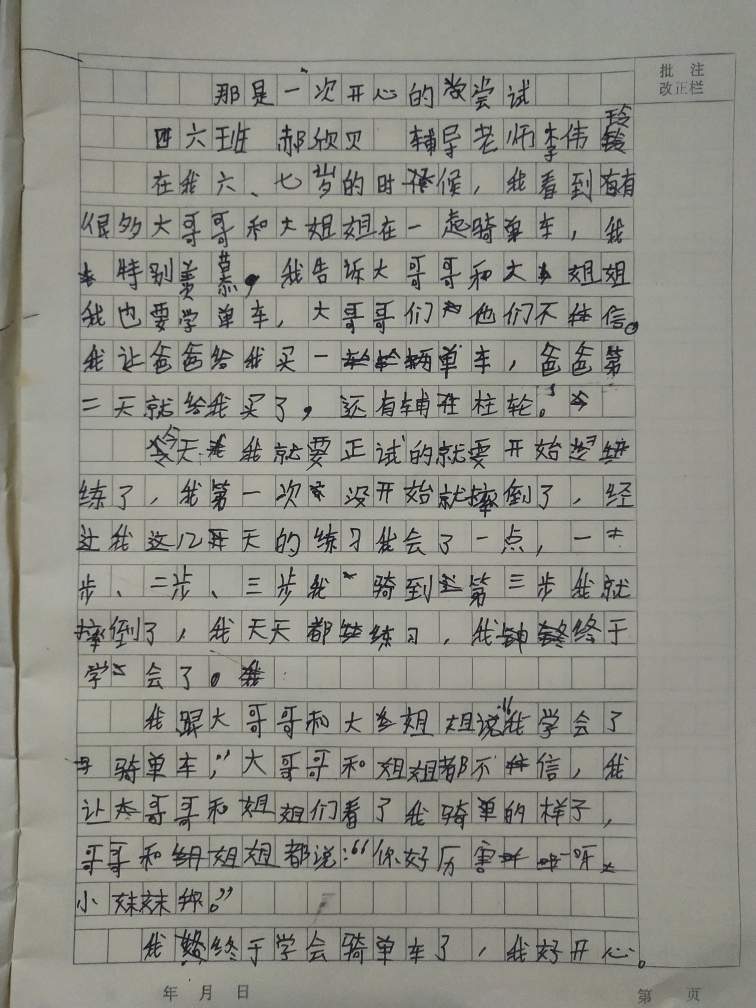 批 注
改正栏
那是一次开心的尝试
四六班 郝欣贝 辅导老师李伟玲
在我六、七岁的时候，我看到有
很多大哥哥和大姐姐在一起骑单车，我
特别羡慕，我告诉大哥哥和大姐姐
我也要学单车，大哥哥们他们不信。
我让爸爸给我买一辆单车，爸爸第
二天就给我买了，还有辅柱轮。
今天我就要正试的就要开始
练了，我第一次没开始就摔倒了，经
过我这几天的练习我会了一点，一
步、二步、三步我骑到第三步我就
摔倒了，我天天都练习，我终于
学会了。
我跟大哥哥和大姐姐说“我学会了
骑单车，”大哥哥和姐姐都不信，我
让大哥哥和姐姐们看了我骑单的样子，
哥哥和姐姐都说：“你好厉害呀
小妹妹。”
我终于学会骑单车了，我好开心。
年 月 日 第 页